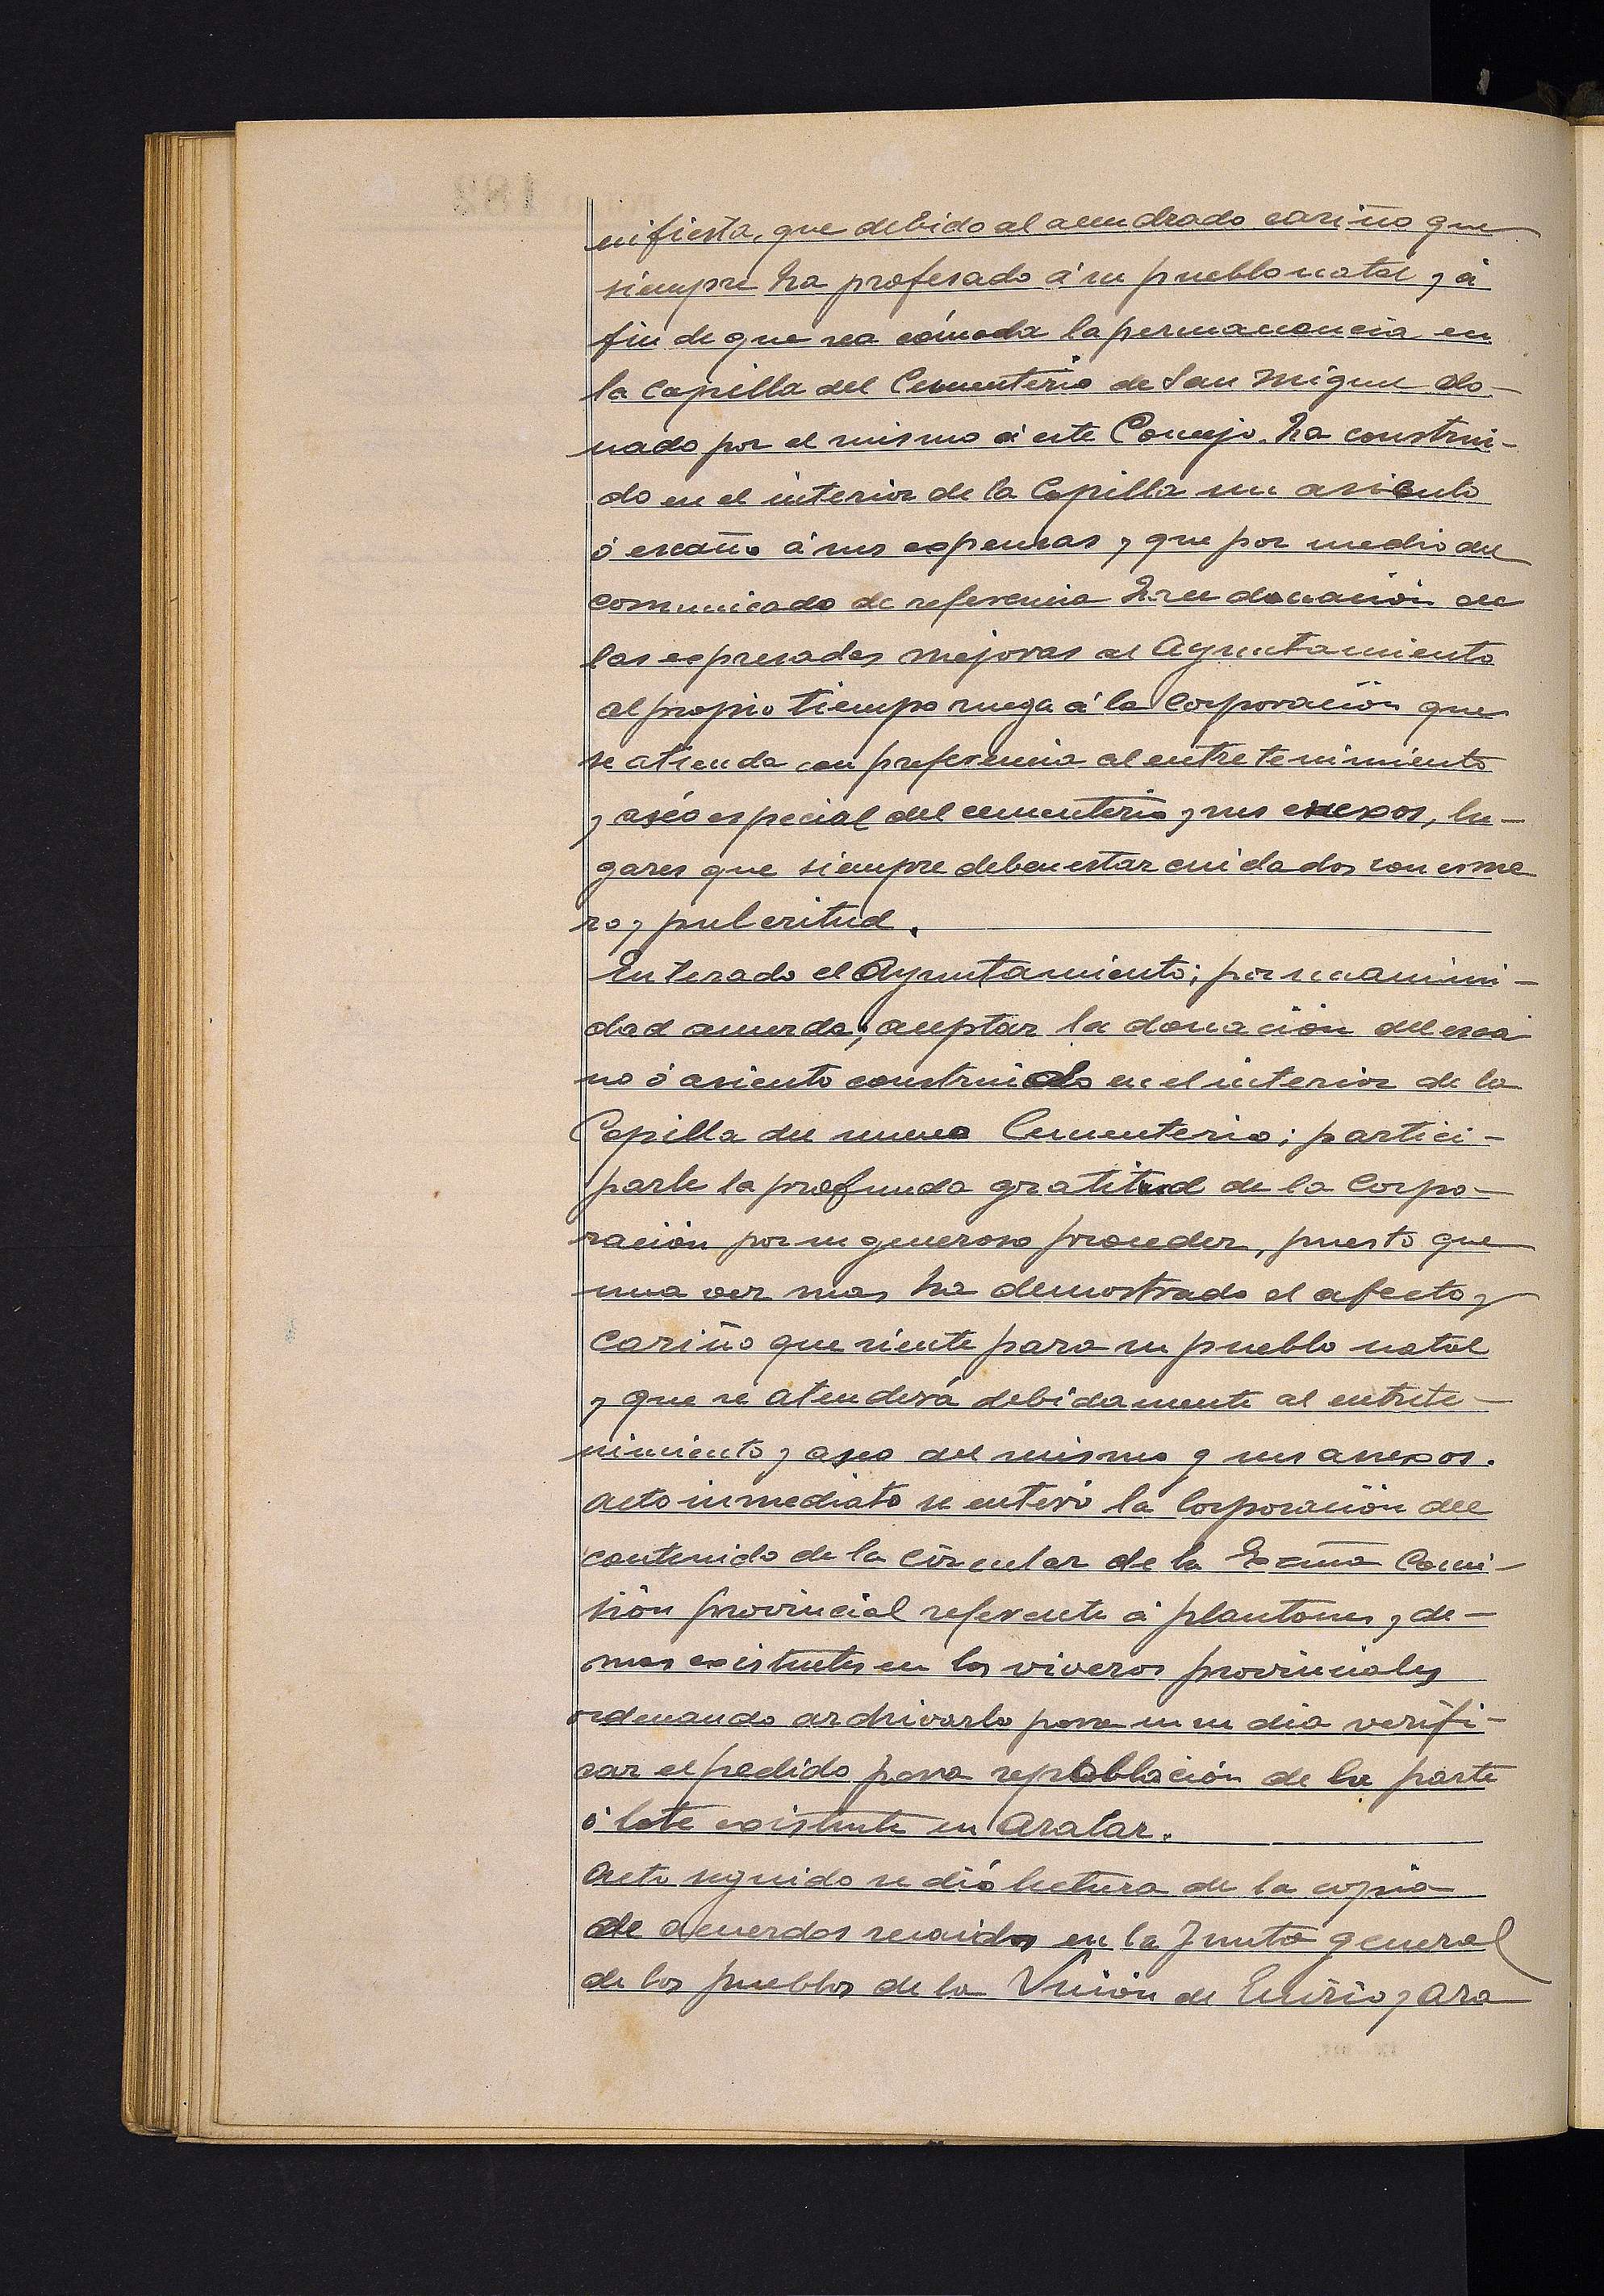 nifiesta, que debido al acendrado cariño que
siempre ha profesado á su pueblo natal y á
fin de que sea cómoda la permanencia en
la capilla del Cementerio de San Miguel do-
nado por el mismo á este Concejo. ha construi-
do en el interior de la Capilla un asiento
ó escaño á sus expensas y que por medio del
comunicado de referencia hace donación de
las expresadas mejoras al Ayuntamiento
al propio tiempo ruega á la Corporación que
se atienda con preferencia al entretenimiento
y aseo especial del cementerio y sus anexos, lu-
gares que siempre deben estar cuidados con esme
ro y pulcritud.
Enterado el Ayuntamiento; por unanimi-
dad acuerda; aceptar la donación del esca
no ó asiento construido en el interior de la
Capilla del nuevo Cementerio; partici-
parle la profunda gratitud de la Corpo-
ración por su generoso proceder, puesto que
una vez mas ha demostrado el afecto y
cariño que siente para su pueblo natal
y que se atenderá debidamente al entrete-
nimiento y aseo del mismo y sus anexos.
Acto inmediato se enteró la Corporación del
contenido de la circular de la Excma Comi-
sión provincial referente á plantones y de-
mas existentes en los viveros provinciales
ordenando archivarlo para en su dia verifi-
car el pedido para repoblación de la parte
ó lote existente en Aralar.
Acto seguido se dió lectura de la copia
de acuerdos recaidos en la Junta general
de los pueblos de la Unión de Enirio y Ara